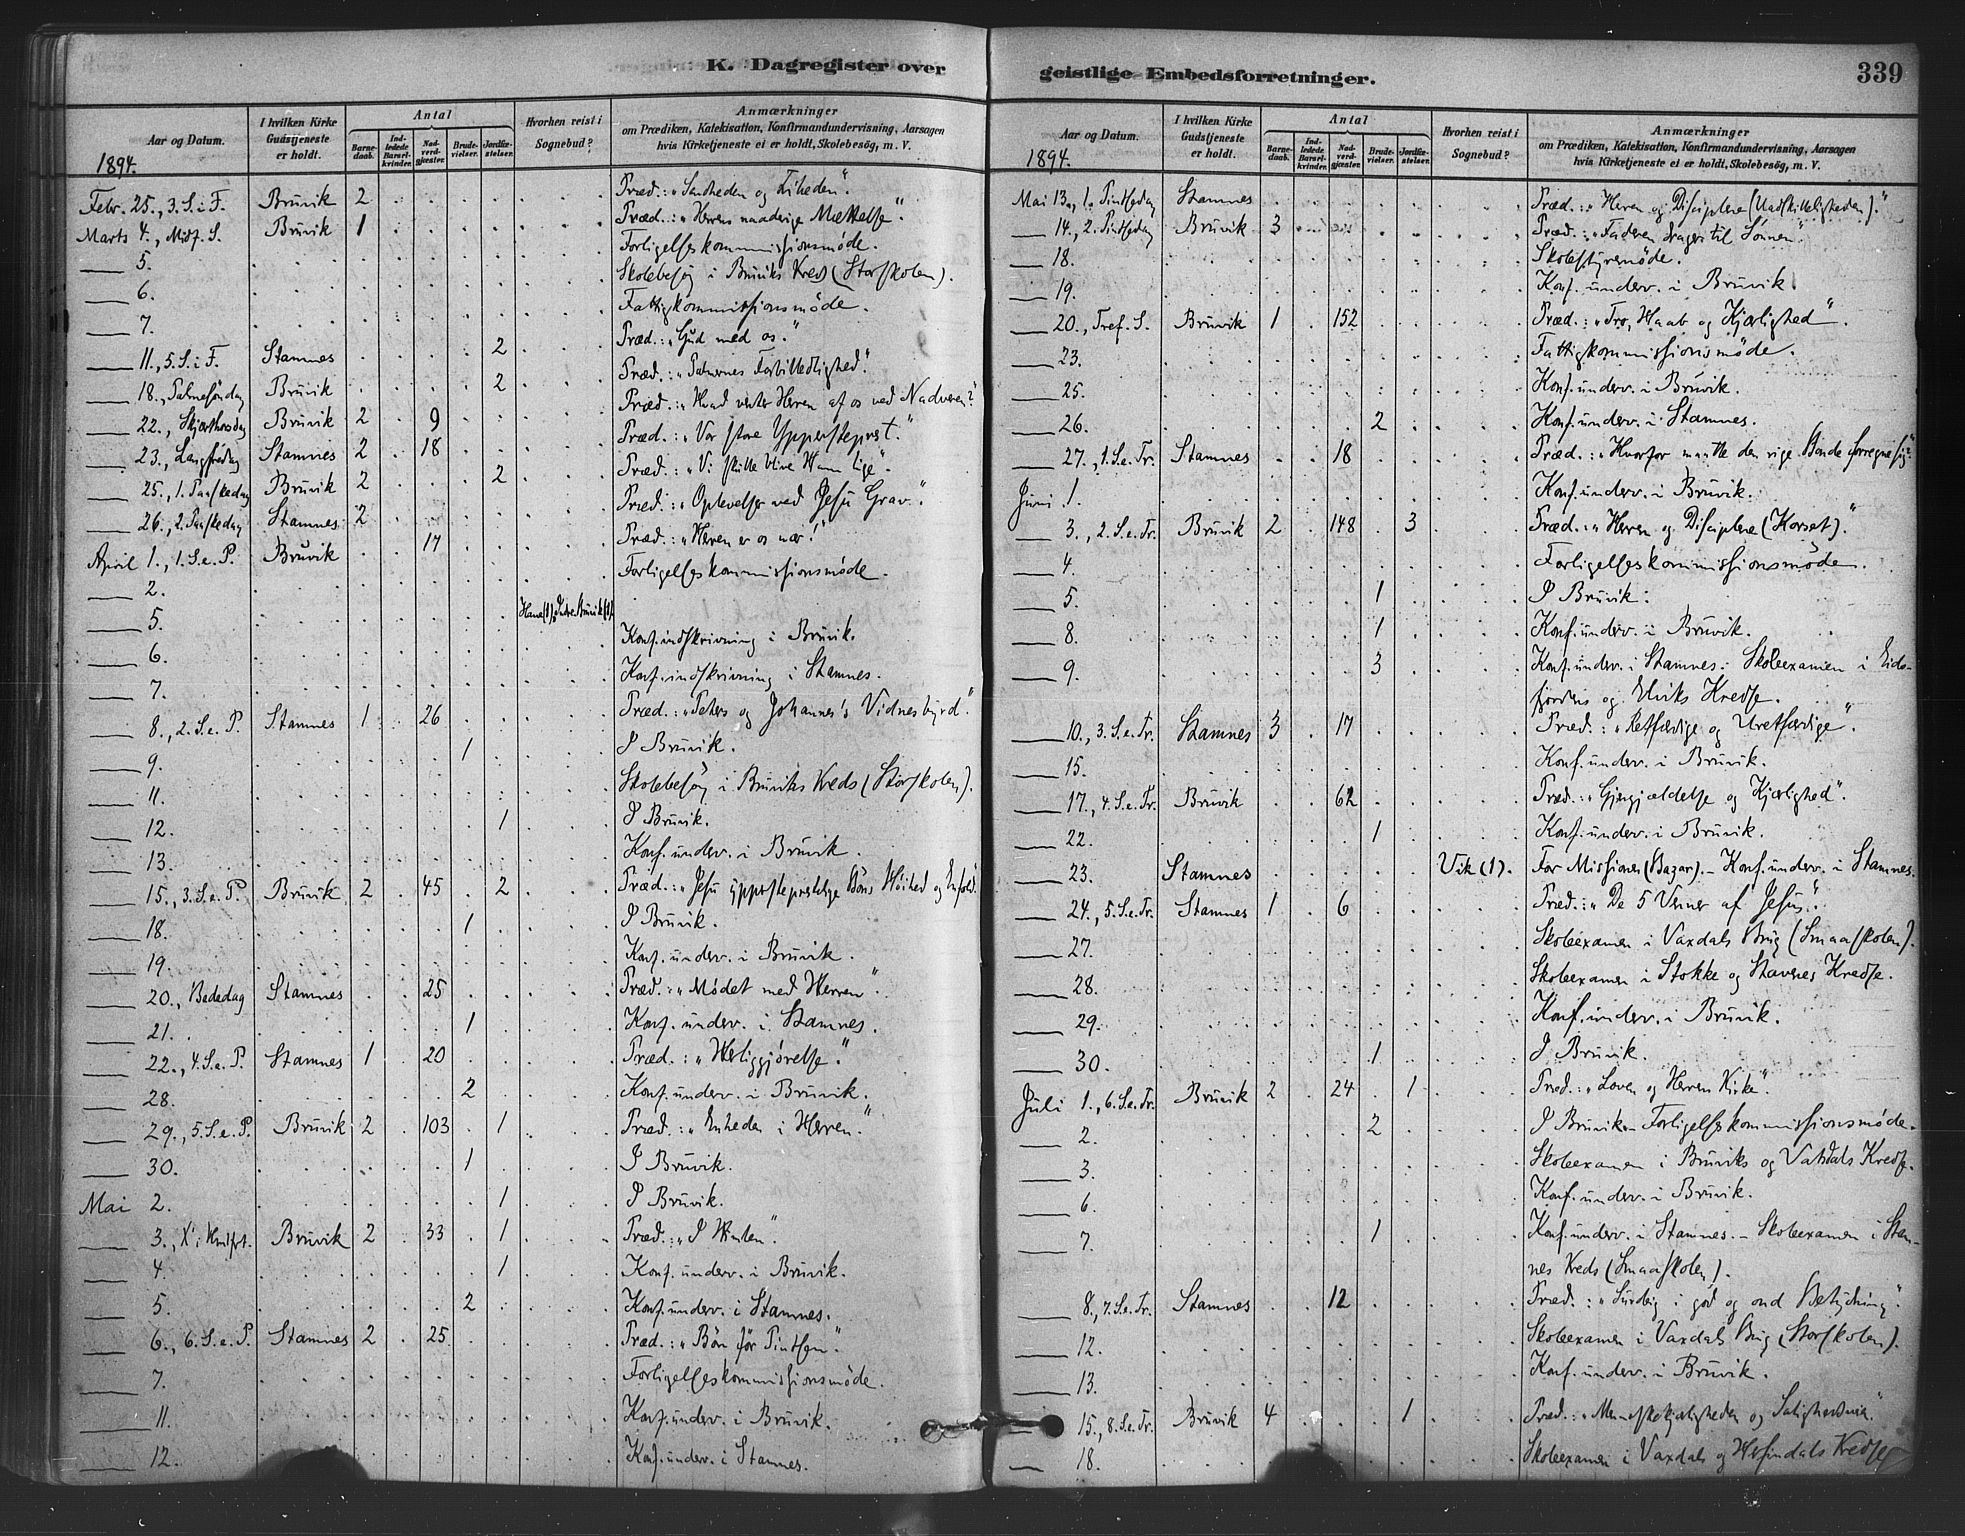 K. Dagregister over
Aar og Datum.
I hvilken Kirke Gudstjeneste er holdt.
Antal
Barne-daab.
Ind-ledede Barsel-kvinder.
Nad-verd-gjæster.
Brude-vielser.
Jordfæ-stelser.
Hvorhen reist i Sognebud?
Anmærkninger
om Prædiken, Katekisation, Konfirmandundervisning, Aarsagen
hvis Kirketjeneste ei er holdt, Skolebesøg, m. V.
1894.
Febr. 25., 3. S. i F. Bruvik 2 Præd.: "Sandheden og Friheden".
Marts 4., Midf. S. Bruvik 1 Præd.: "Herrens naaderige Mættelse".
5. Forligelseskommissionsmøde.
6. Skolebesøg i Bruviks Kreds (Storskolen).
7. Fattigkommissionsmøde.
11., 5. S. i F. Stamnes 2 Præd.: "Gud med os".
18., Palmesøndag Bruvik 2 Præd.: "Palmernes Forbilledlighed".
22., Skjærthorsdag Bruvik 2 9 Præd.: "Hvad venter Herren af os ved Nadveren?"
23., Langfredag Stamnes 2 18 Præd.: "Vor store Ypperstepræst".
25., 1. Paaskedag Bruvik 2 2 Præd.: "Vi skulle blive Ham lige".
26., 2. Paaskedag Stamnes 2 Præd.: "Oplevelser ved Jesu Grav".
April 1., 1. S. e. P. Bruvik 17 Præd.: "Herren er os nær!"
2. Forligelseskommissionsmøde.
5. (1), Indre Bruvik (1).
6. Konf. indskrivning i Bruvik.
7. Konf. indskrivning i Stamnes.
8., 2. S. e. P. Stamnes 1 26 Præd.: "Peters og Johannes's Vidnesbyrd".
9. 1 I Bruvik.
11. Skolebesøg i Bruviks Kreds (Storskolen).
12. 1 I Bruvik.
13. Konf. underv. i Bruvik.
15., 3. S. e. P. Bruvik 2 45 2 Præd.: "Jesu ypperstepræstelige Bøns Høihed og Enfold".
18. 1 I Bruvik.
19. Konf. underv. i Bruvik.
20., Bededag Stamnes 25 Præd.: "Mødet med Herren".
21. 1 Konf. underv. i Stamnes.
22., 4. S. e. P. Stamnes 1 20 Præd.: "Helliggjørelse".
28. 2 Konf. underv. i Bruvik.
29., 5. S. e. P. Bruvik 2 103 1 Præd.: "Enheden i Herren".
30. 1 I Bruvik.
Mai 2. 1 I Bruvik.
3., Xi Himlfrt. Bruvik 2 33 1 Præd.: "I Himlen".
4. 1 Konf. underv. i Bruvik.
5. 2 Konf. underv. i Stamnes.
6., 6. S. e. P. Stamnes 2 25 Præd.: "Bøn før Pintsen".
7. Forligelseskommissionsmøde.
11. Konf. underv. i Bruvik.
12. Konf. underv. i Stamnes.
geistlige Embedsforretninger.
339
Aar og Datum.
I hvilken Kirke Gudstjeneste er holdt.
Antal
Barne-daab.
Ind-ledede Barsel-kvinder.
Nad-verd-gjæster.
Brude-vielser.
Jordfæ-stelser.
Hvorhen reist i Sognebud?
Anmærkninger
om Prædiken, Katekisation, Konfirmandundervisning, Aarsagen
hvis Kirketjeneste ei er holdt, Skolebesøg, m. V.
1894.
Mai 13., 1. Pintsedag Stamnes Præd.: "Herren og Disciplene (Uadskilleligheden)."
14., 2. Pintsedag Bruvik 3 Præd.: "Faderen drager til Sønnen".
18. Skolestyremøde.
19. Konf. underv. i Bruvik
20., Tref. S. Bruvik 1 152 Præd.: "Tro, Haab og Kjærlighed".
23. Fattigkommissionsmøde.
25. Konf. underv. i Bruvik.
26. 2 Konf. underv. i Stamnes.
27., 1. S. e. Tr. Stamnes 18 Præd.: "Hvorfor maatte den rige Bonde forregne sig?"
Juni 1. Konf. underv. i Bruvik.
3., 2. S. e. Tr. Bruvik 2 148 3 Præd.: "Herren og Disciplene (Korset)."
4. Forligelseskommissionsmøde.
5. 1 I Bruvik.
8. 1 Konf. underv. i Bruvik.
9. 3 Konf. underv. i Stamnes. Skoleexamen i Eids-
fjordens og Eliviks Kredse.
10., 3. S. e. Tr. Stamnes 3 17 Præd.: "Retfærdige og Uretfærdige".
15. Konf. underv. i Bruvik.
17., 4. S. e. Tr. Bruvik 62 Præd.: "Gjengjældelse og Kjærlighed".
22. 1 Konf. underv. i Bruvik.
23. Stamnes Vik (1). For Missionen (Bazar). - Konf. underv. i Stamnes.
24., 5. S. e. Tr. Stamnes 1 6 Præd.: "De 5 Venner af Jesus".
27. Skoleexamen i Vaxdals Brug (Smaaskolen).
28. Skoleexamen i Stokke og Stavnes Kredse.
29. Konf. underv. i Bruvik.
30. 1 I Bruvik.
Juli 1., 6. S. e. Tr. Bruvik 2 24 1 Præd.: "Loven og Herrens Kirke".
2. 2 I Bruvik. - Forligelseskommissionsmøde.
3. Skoleexamen i Bruviks og Vatsdals Kredse.
6. Konf. underv. i Bruvik.
7. 1 Konf. underv. i Stamnes. - Skoleexamen i Stam-
nes Kreds (Smaaskolen).
8., 7. S. e. Tr. Stamnes 12 Præd.: "Surdeig i god og ond Betydning".
12. Skoleexamen i Vaxdals Brug (Storskolen).
13. Konf. underv. i Bruvik.
15., 8. S. e. Tr. Bruvik 4 1 Præd.: "Menneskekjærligheden og Salighedsveien".
18. Skoleexamen i Vaxdals og Kredse